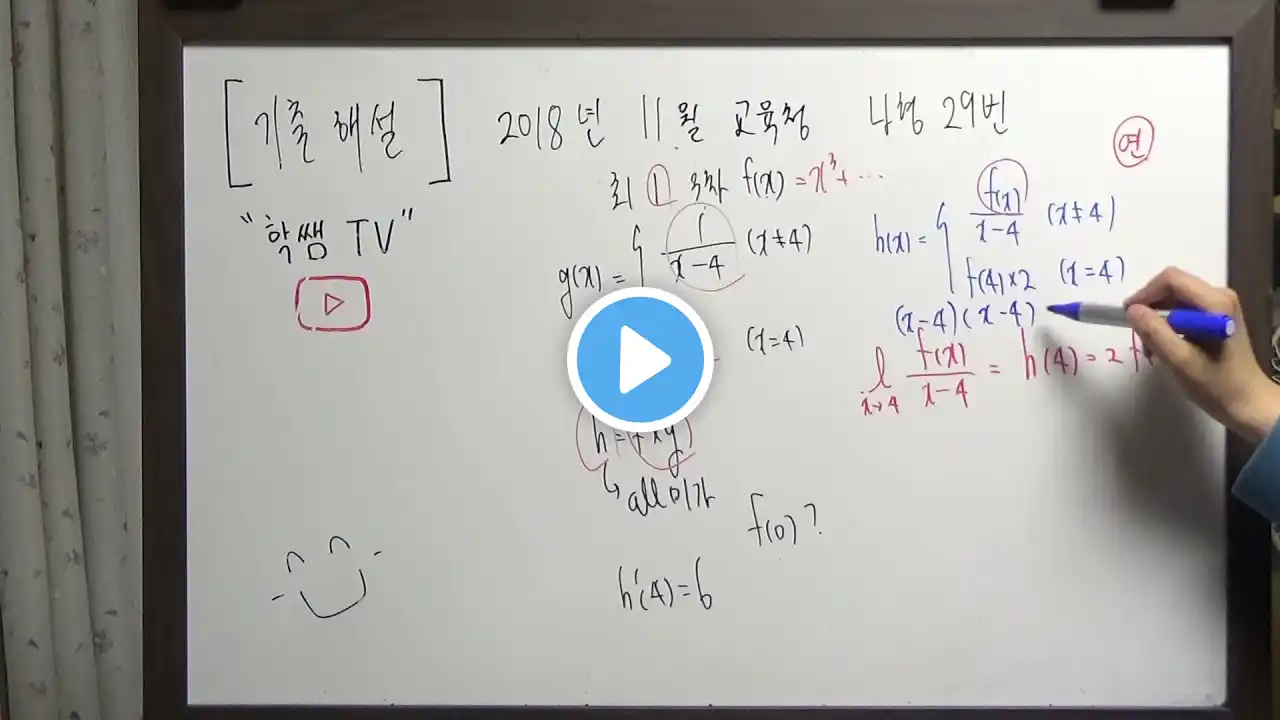 [기출 해설] 2018년 11월 교육청 나형 29번
연
"학쌤 TV"
최 1 f(x) = x³+ ⋯
g(x) = { 1/(x-4) (x≠4)
(x=4)
h(x) = { f(x)/(x-4) (x≠4)
f(4)×2 (x=4)
(x-4)(x-4)
l x→4 f(x)/(x-4) = h(4) = 2
h = f×g
↳ all 미가
f(0)?
h'(4)=6